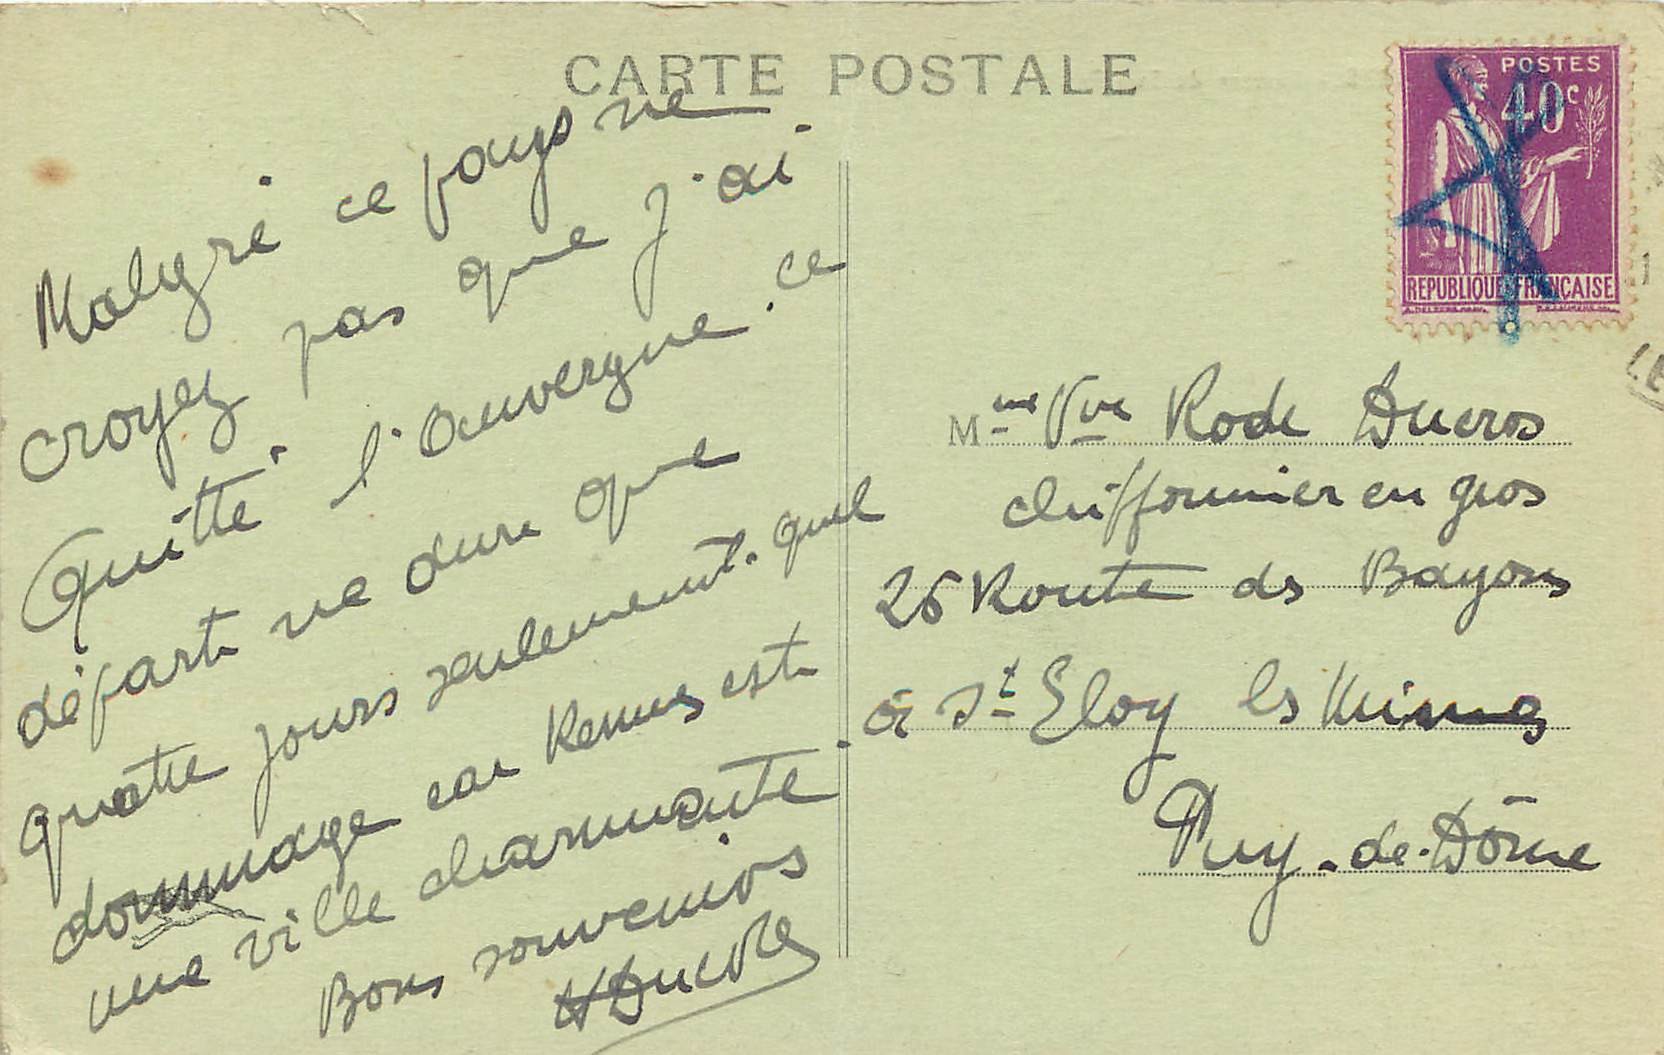 CARTE POSTALE
Malgré ce pays ne
croyez pas que j'ai
Quitté l'Auvergne. ce
départ ne dure que
quatre jours seulement. quel
dommage car Rennes est
une ville charmante.
Bons souvenirs
POSTES
40c
REPUBLIQUE FRANÇAISE
Mme Vve Rode Ducros
chiffonnier en gros
26 Route de Bayons
à St Eloy les Mines
Puy-de-Dôme